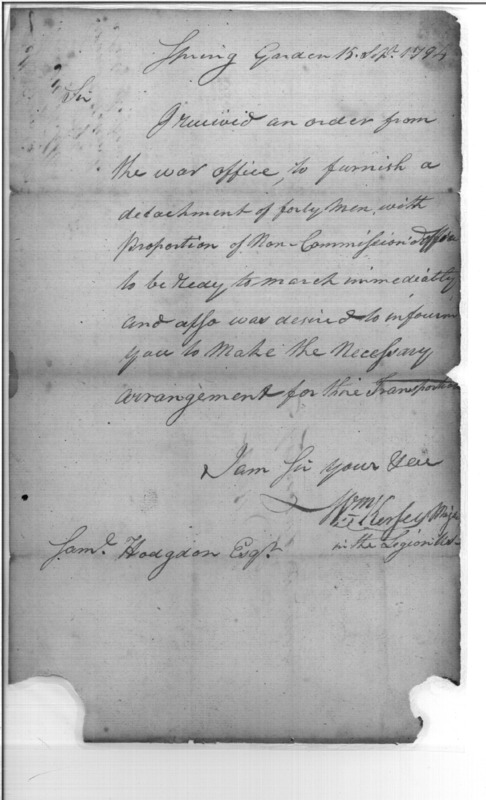 Spring Garden 15. Sept. 1794
Sir
I received an order from
the war office, to furnish a
detachment of forty Men, with
Proportion of Non-Commission'd
to be Ready to march immediatly
and also was desired to infourm
you to Make the Necessary
arrangement for thire Transportn
I am Sir your
Wm Kersey Major
in the Legion
Saml Hodgdon Esqr